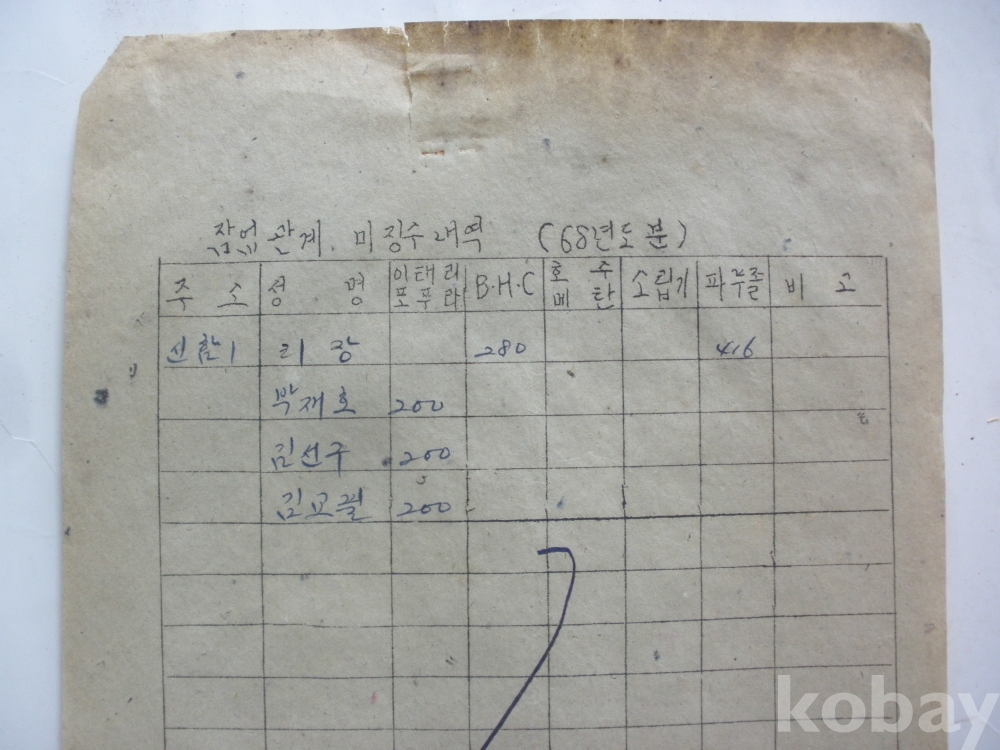 잠업관계. 미징수내역 (68년도분)
주소 성명 이태리포푸라 B·H·C 호주메탄 소립기 파우졸 비고
신함1 리장 280 416
박재호 200
김선구 200
200
kobay